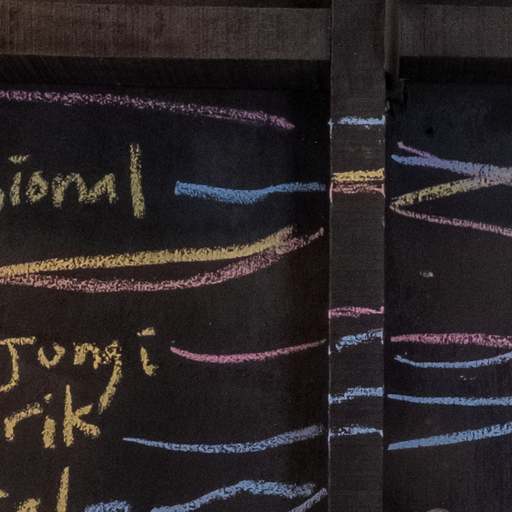 sional
Jungi
rik